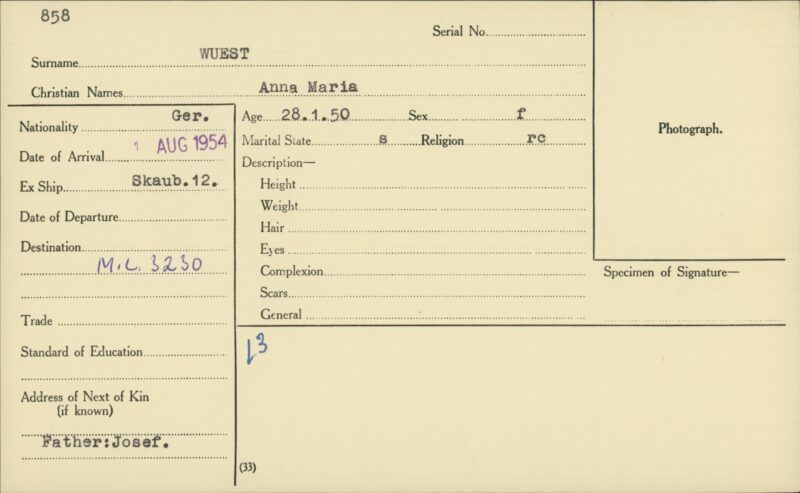 858
Serial No.
Surname WUEST
Christian Names Anna Maria
Nationality Ger.
Date of Arrival 1 AUG 1954
Ex Ship Skaub.12.
Date of Departure
Destination
M.L. 3230
Trade
Standard of Education
Address of Next of Kin
(if known)
Father:Josef.
Age 28.1.50 Sex f
Marital State s Religion rc
Description—
Height
Weight
Hair
Eyes
Complexion
Scars
General
(33)
Photograph.
Specimen of Signature—